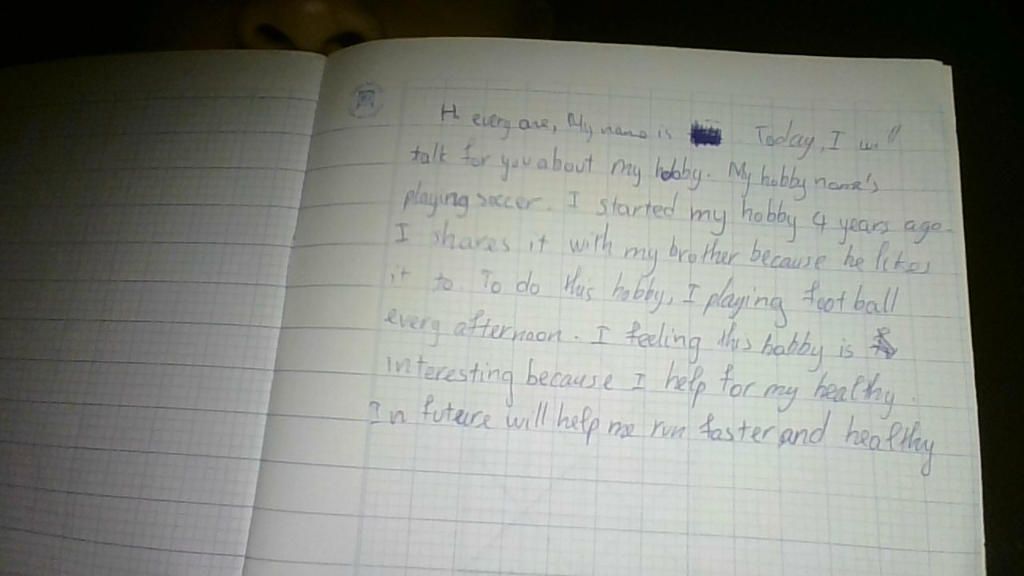 Hi every one, My name is Today, I will
talk for you about my hobby. My hobby name's
playing soccer. I started my hobby 4 years ago.
I shares it with my brother because he likes
it to. To do this hobby, I playing football
every afternoon. I feeling this hobby is
interesting because I help for my healthy.
In future will help me run faster and healthy